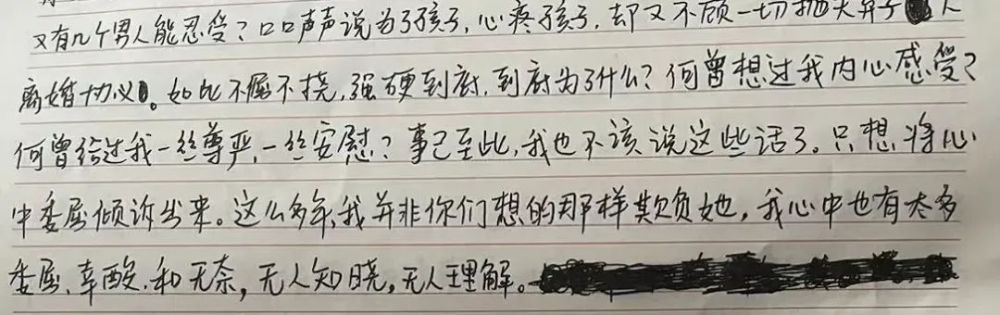 又有几个男人能忍受？口口声声说为了孩子，心疼孩子，却又不顾一切抛夫弃子
离婚协议。如此不屈不挠，强硬到底，到底为了什么？何曾想过我内心感受？
何曾给过我一丝尊严，一丝安慰？事已至此，我也不该说这些话了。只想将心
中委屈倾诉出来。这么多年，我并非你们想的那样欺负她，我心中也有太多
委屈、辛酸、和无奈，无人知晓，无人理解。